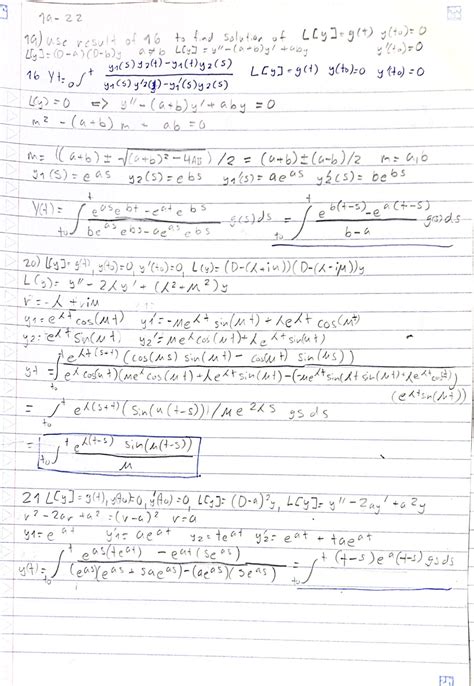 19-22
19) use result of 16 to find solution of L[y]=g(t) y(t0)=0
L[y]=(D-a)(D-b)y a≠b L[y]=y''-(a+b)y'+aby y'(t0)=0
16 Yt=∫ y1(s)y2(t)-y1(t)y2(s) / y1(s)y2'(s)-y1'(s)y2(s) L[y]=g(t) y(t0)=0 y'(t0)=0
L(y)=0 ⟺ y''-(a+b)y'+aby=0
m²-(a+b)m - ab=0
m=((a+b)±√((a+b)²-4AB))/2 = (a+b)±(a-b)/2 m=a,b
y1(s)=e^as y2(s)=e^bs y1'(s)=ae^as y2'(s)=be^bs
Y(t)=∫t0^t e^as e^bt - e^at e^bs / be^as e^bs - ae^as e^bs g(s)ds = ∫t0^t e^b(t-s) - e^a(t-s) / b-a g(s)ds
20) L[y]=g(t), y(t0)=0, y'(t0)=0, L(y)=(D-(λ+iμ))(D-(λ-iμ))y
L(y)=y''-2λy'+(λ²+μ²)y
r=-λ±iμ
y1=e^λt cos(μt) y1'=-μe^λt sin(μt)+λe^λt cos(μt)
y2=e^λt sin(μt) y2'=μe^λt cos(μt)+λe^λt sin(μt)
yt=∫t0^t e^λ(s+t)(cos(μs) sin(μt) - cos(μt) sin(μs)) / e^λt cos(μt)(μe^λt cos(μt)+λe^λt sin(μt))-(-μe^λt sin(μt)+λe^λt cos(μt))
(e^λt sin(μt))
= ∫t0^t e^λ(s+t)(sin(μ(t-s)))/μe^2λs gs ds
= ∫t0^t e^λ(t-s) sin(μ(t-s)) / μ
21 L[y]=g(t), y(t0)=0, y'(t0)=0, L[y]=(D-a)²y, L[y]=y''-2ay'+a²y
r²-2ar+a²=(r-a)² r=a
y1=e^at y1'=ae^at y2=te^at y2'=e^at+tae^at
y(t)=∫t0^t e^as(te^at) - e^at(se^as) / (e^as)(e^as+sae^as)-(ae^as)(se^as) = ∫t0^t (t-s)e^a(t-s) gs ds